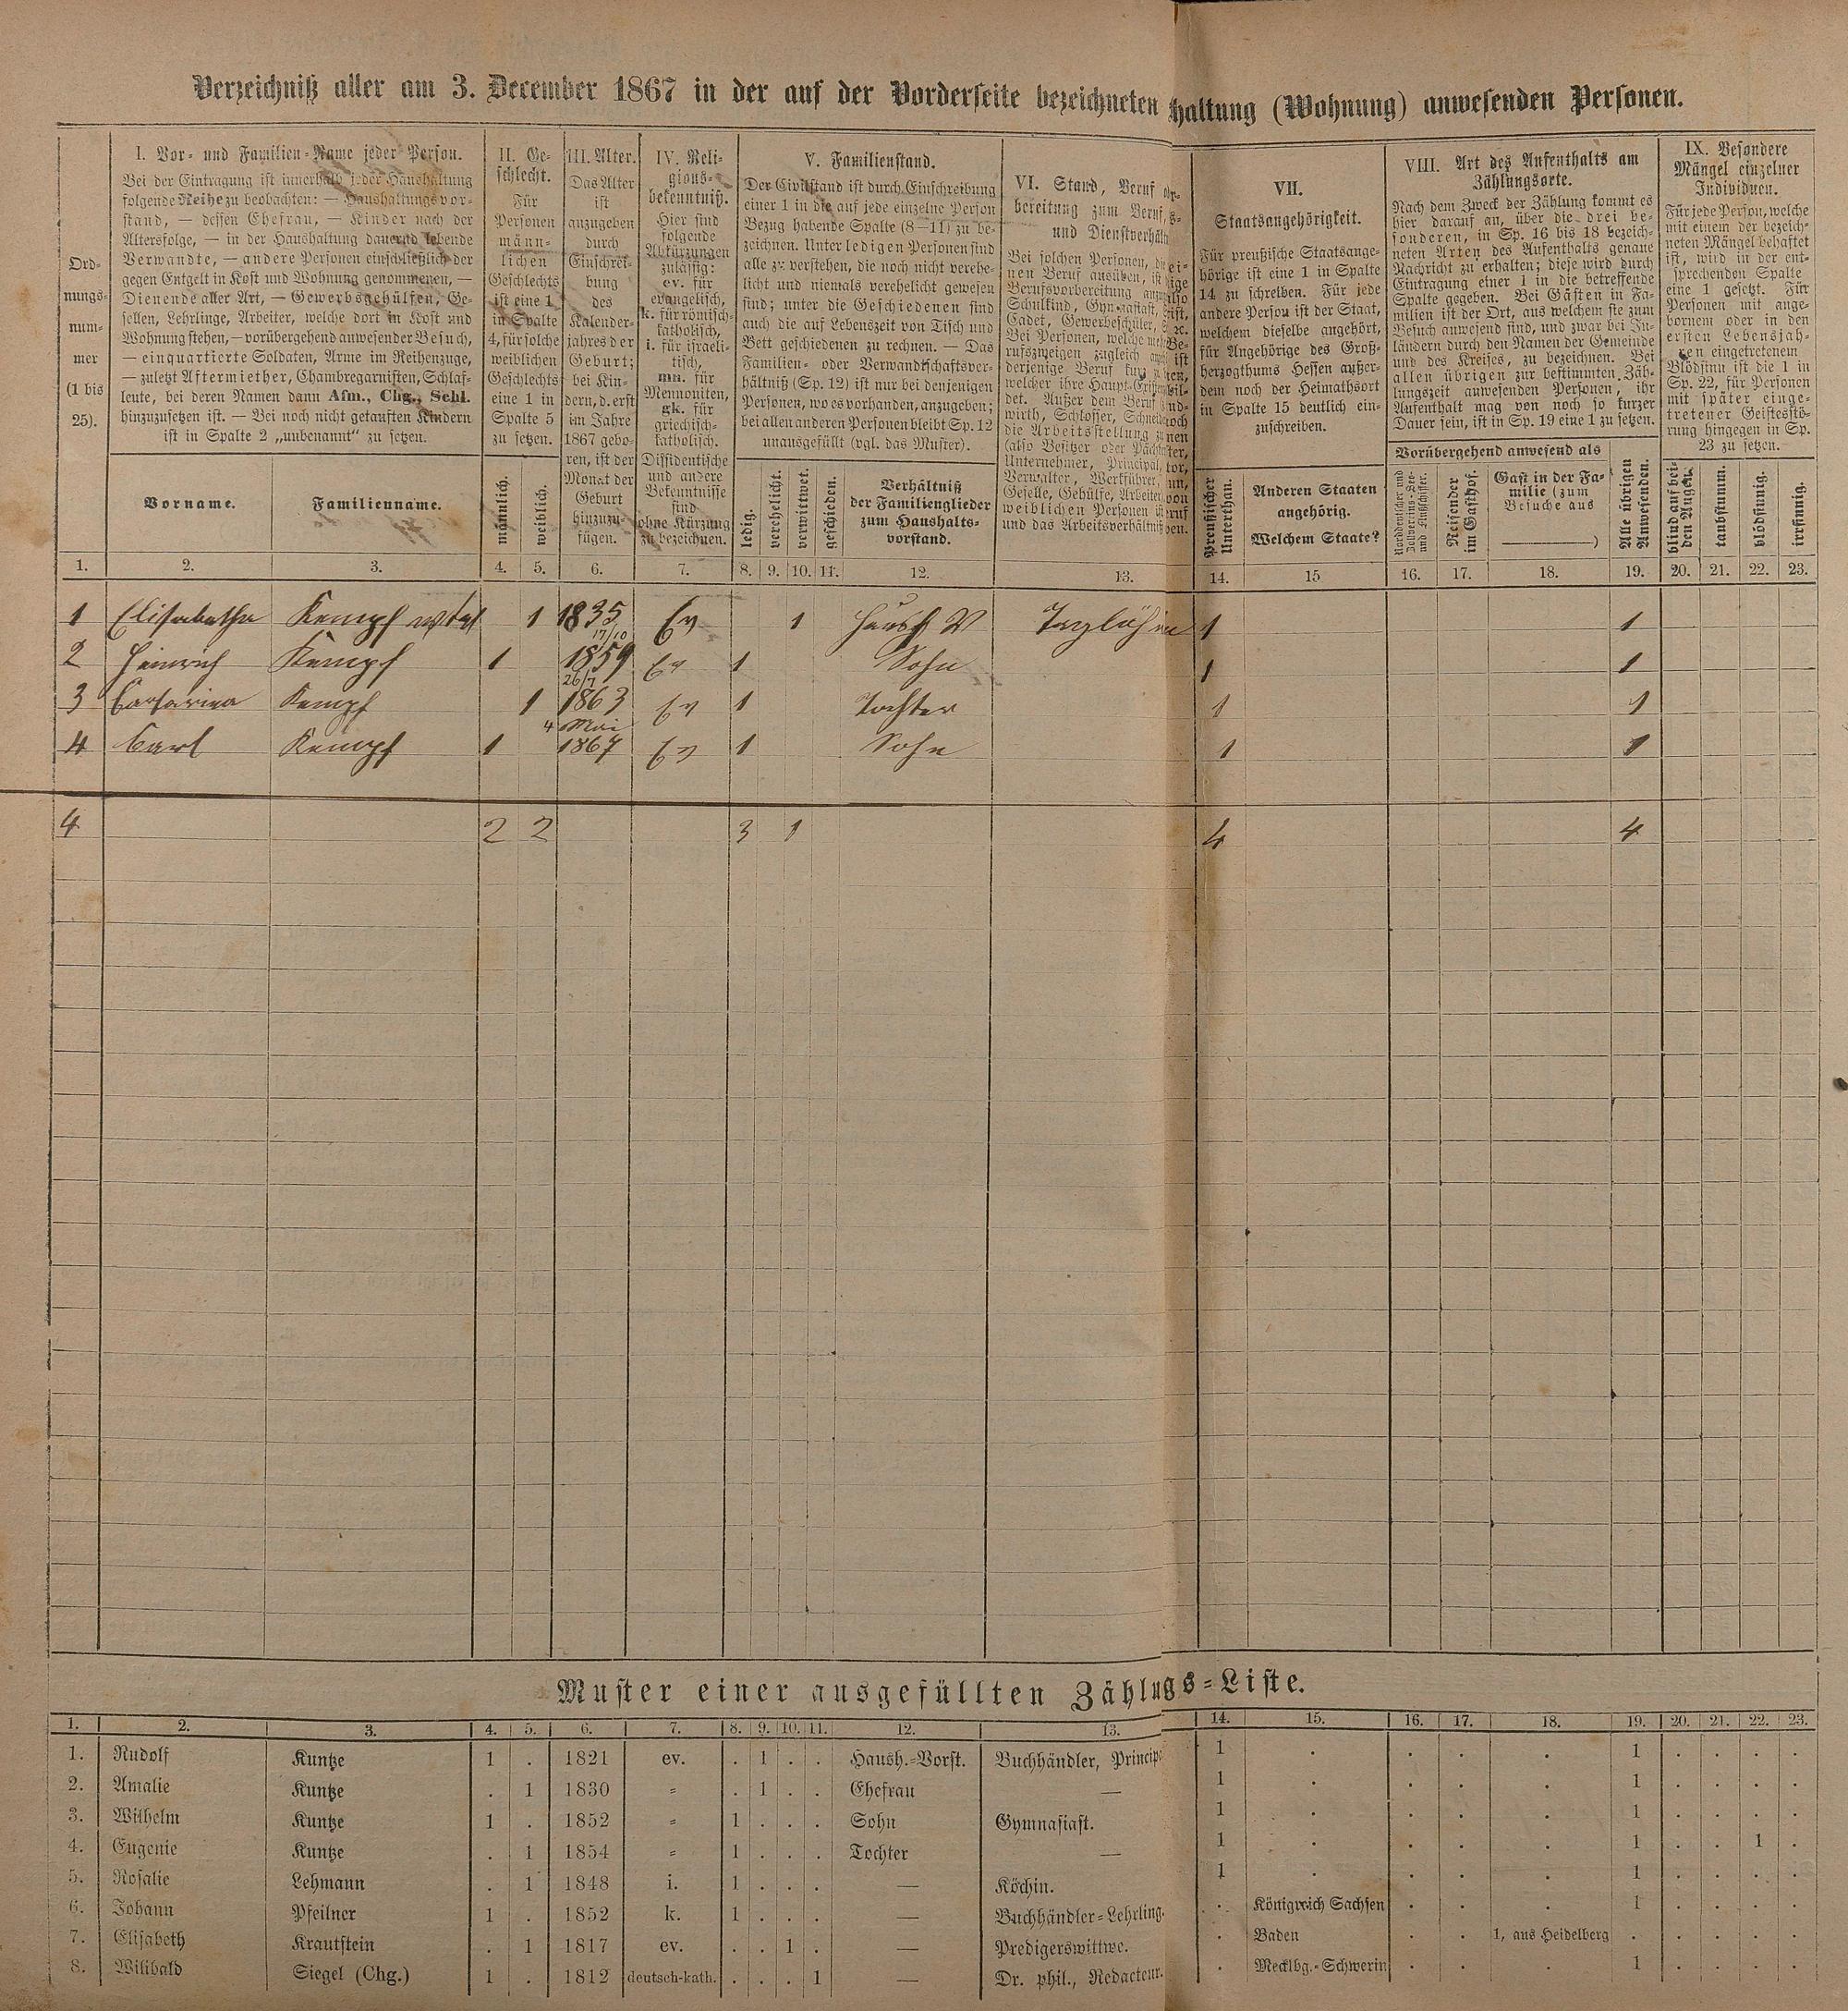 Verzeichniß aller am 3. December 1867 in der auf der Vorderseite bezeichneten haltung (Wohnung) anwesenden Personen.
Ord-
nungs-
num-
mer
(1 bis
25).
I. Vor- und Familien-Name jeder Person.
Bei der Eintragung ist innerhalb jeder Haushaltung
folgende Reihe zu beobachten: — Haushaltungsvor-
stand, — dessen Ehefrau, — Kinder nach der
Altersfolge, — in der Haushaltung dauernd lebende
Verwandte, — andere Personen einschließlich der
gegen Entgelt in Kost und Wohnung genommenen, —
Dienende aller Art, — Gewerbsgehülfen, Ge-
sellen, Lehrlinge, Arbeiter, welche dort in Kost und
Wohnung stehen, — vorübergehend anwesender Besuch,
— einquartierte Soldaten, Arme im Reihenzuge,
— zuletzt Aftermiether, Chambregarnisten, Schlaf-
leute, bei deren Namen dann Afm., Chg., Schl.
hinzuzusetzen ist. — Bei noch nicht getauften Kindern
ist in Spalte 2 „unbenannt“ zu setzen.
Vorname.
Familienname.
II. Ge-
schlecht.
Für
Personen
männ-
lichen
Geschlechts
ist eine 1
in Spalte
4, für solche
weiblichen
Geschlechts
eine 1 in
Spalte 5
zu setzen.
männlich.
weiblich.
III. Alter.
Das Alter
ist
anzugeben
durch
Einschrei-
bung
des
Kalender-
jahres der
Geburt;
bei Kin-
dern, d. erst
im Jahre
1867 gebo-
ren, ist der
Monat der
Geburt
hinzuzu-
fügen.
IV. Reli-
gions-
bekenntniß.
Hier sind
folgende
Abkürzungen
zulässig:
ev. für
evangelisch,
k. für römisch-
katholisch,
i. für israeli-
tisch,
mn. für
Mennoniten,
gk. für
griechisch-
katholisch.
Dissidentische
und andere
Bekenntnisse
sind
ohne Kürzung
zu bezeichnen.
V. Familienstand.
Der Civilstand ist durch Einschreibung
einer 1 in die auf jede einzelne Person
Bezug habende Spalte (8—11) zu be-
zeichnen. Unter ledigen Personen sind
alle zu verstehen, die noch nicht verehe-
licht und niemals verehelicht gewesen
sind; unter die Geschiedenen sind
auch die auf Lebenszeit von Tisch und
Bett geschiedenen zu rechnen. — Das
Familien- oder Verwandtschaftsver-
hältniß (Sp. 12) ist nur bei denjenigen
Personen, wo es vorhanden, anzugeben;
bei allen anderen Personen bleibt Sp. 12
unausgefüllt (vgl. das Muster).
ledig.
verehelicht.
verwittwet.
geschieden.
Verhältniß
der Familienglieder
zum Haushalts-
vorstand.
VI. Stand, Beruf
bereitung zum Beruf,
und Dienstverhält
Bei solchen Personen, di
nen Beruf ausüben, ist
Berufsvorbereitung
Schulkind, Gymnasiast,
Cadet, Gewerbeschüler,
Bei Personen, welche
rufszweigen zugleich
derjenige Beruf
welcher ihre Haupt-
det. Außer dem Beruf
wirth, Schlosser, Schneider
die Arbeitsstellung
(also Besitzer oder Pächter
Unternehmer, Principal,
Verwalter, Werkführer,
Geselle, Gehülfe, Arbeiter
weiblichen Personen
und das Arbeitsverhältniß
VII.
Staatsangehörigkeit.
Für preußische Staatsange-
hörige ist eine 1 in Spalte
14 zu schreiben. Für jede
andere Person ist der Staat,
welchem dieselbe angehört,
für Angehörige des Groß-
herzogthums Hessen außer-
dem noch der Heimathsort
in Spalte 15 deutlich ein-
zuschreiben.
Preußischer
Unterthan.
Anderen Staaten
angehörig.
Welchem Staate?
VIII. Art des Aufenthalts am
Zählungsorte.
Nach dem Zweck der Zählung kommt es
hier darauf an, über die drei be-
sonderen, in Sp. 16 bis 18 bezeich-
neten Arten des Aufenthalts genaue
Nachricht zu erhalten; diese wird durch
Eintragung einer 1 in die betreffende
Spalte gegeben. Bei Gästen in Fa-
milien ist der Ort, aus welchem sie zum
Besuch anwesend sind, und zwar bei In-
ländern durch den Namen der Gemeinde
und des Kreises, zu bezeichnen. Bei
allen übrigen zur bestimmten Zäh-
lungszeit anwesenden Personen, ihr
Aufenthalt mag von noch so kurzer
Dauer sein, ist in Sp. 19 eine 1 zu setzen.
Vorübergehend anwesend als
Norddeutscher und
Zollvereins-See-
und Flußschiffer.
Reisender
im Gasthof.
Gast in der Fa-
milie (zum
Besuche aus
)
Alle übrigen
Anwesenden.
IX. Besondere
Mängel einzelner
Individuen.
Für jede Person, welche
mit einem der bezeich-
neten Mängel behaftet
ist, wird in der ent-
sprechenden Spalte
eine 1 gesetzt. Für
Personen mit ange-
bornem oder in den
ersten Lebensjah-
ren eingetretenem
Blödsinn ist die 1 in
Sp. 22, für Personen
mit später einge-
tretener Geistesstö-
rung hingegen in Sp.
23 zu setzen.
blind auf bei-
den Augen.
taubstumm.
blödsinnig.
irrsinnig.
1. 2. 3. 4. 5. 6. 7. 8. 9. 10. 11. 12. 13. 14. 15 16. 17. 18. 19. 20. 21. 22. 23.
1 Elisabetha Kempf 1 1835 Ev 1 Haush V Taglöhn 1 1
2 Heinrich Kempf 1 17/10 1859 Ev 1 Sohn 1 1
3 Catharina Kempf 1 26/7 1863 Ev 1 Tochter 1 1
4 Carl Kempf 1 4 Mai 1867 Ev 1 Sohn 1 1
4 2 2 3 1 4 4
Muster einer ausgefüllten Zählugs-Liste.
1. 2. 3. 4. 5. 6. 7. 8. 9. 10. 11. 12. 13. 14. 15. 16. 17. 18. 19. 20. 21. 22. 23.
1. Rudolf Kuntze 1 . 1821 ev. . 1 . . Haush.-Vorst. Buchhändler, Princip 1 . . . . 1 . . . .
2. Amalie Kuntze . 1 1830 = . 1 . . Ehefrau — 1 . . . . 1 . . . .
3. Wilhelm Kuntze 1 . 1852 = 1 . . . Sohn Gymnasiast. 1 . . . . 1 . . . .
4. Eugenie Kuntze . 1 1854 = 1 . . . Tochter — 1 . . . . 1 . . 1 .
5. Rosalie Lehmann . 1 1848 i. 1 . . . — Köchin. 1 . . . . 1 . . . .
6. Johann Pfeilner 1 . 1852 k. 1 . . . — Buchhändler-Lehrling. . Königreich Sachsen . . . 1 . . . .
7. Elisabeth Krautstein . 1 1817 ev. . . 1 . — Predigerswittwe. . Baden . . 1, aus Heidelberg . . . . .
8. Wilibald Siegel (Chg.) 1 . 1812 deutsch-kath. . . . 1 — Dr. phil., Redacteur. . Mecklbg.-Schwerin . . . 1 . . . .